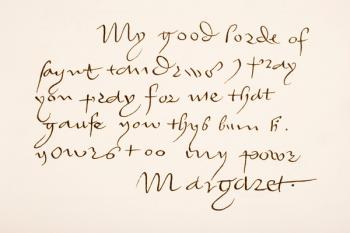 My good lorde of
saynt tandrews I pray
you pray for me that
gaufe yow thys buuk
yours too my powr
Margaret.